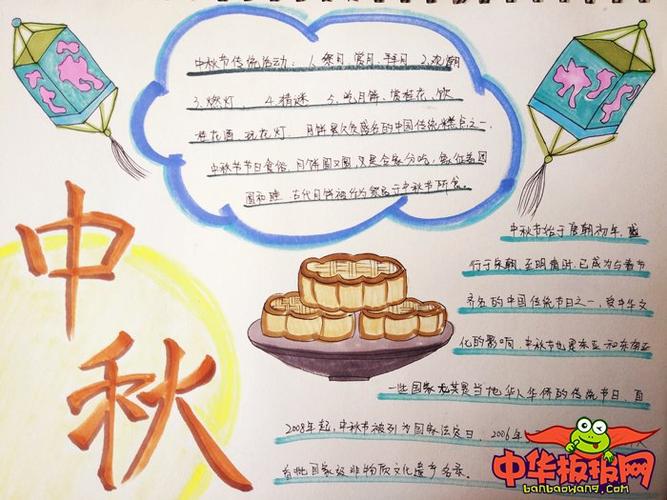 中秋节传统活动：1、祭月 赏月、拜月 2、观潮
3、燃灯、 4、猜谜 5、吃月饼、赏桂花、饮
桂花酒、玩花灯 月饼是久负盛名的中国传统糕点之一，
中秋节节日食俗，月饼圆又圆，又是合家分吃，象征着团
圆和睦，古代月饼被作为祭品于中秋节所食。
中秋
中秋节始于唐朝初年，盛
行于宋朝，至明清时，已成为与春节
齐名的中国传统节日之一，受中华文
化的影响，中秋节也是东亚和东南亚
一些国家尤其是当地华人华侨的传统节日，自
2008年起，中秋节被列为国家法定日，2006年
首批国家级非物质文化遗产名录。
中华板报网
banbaowang.com